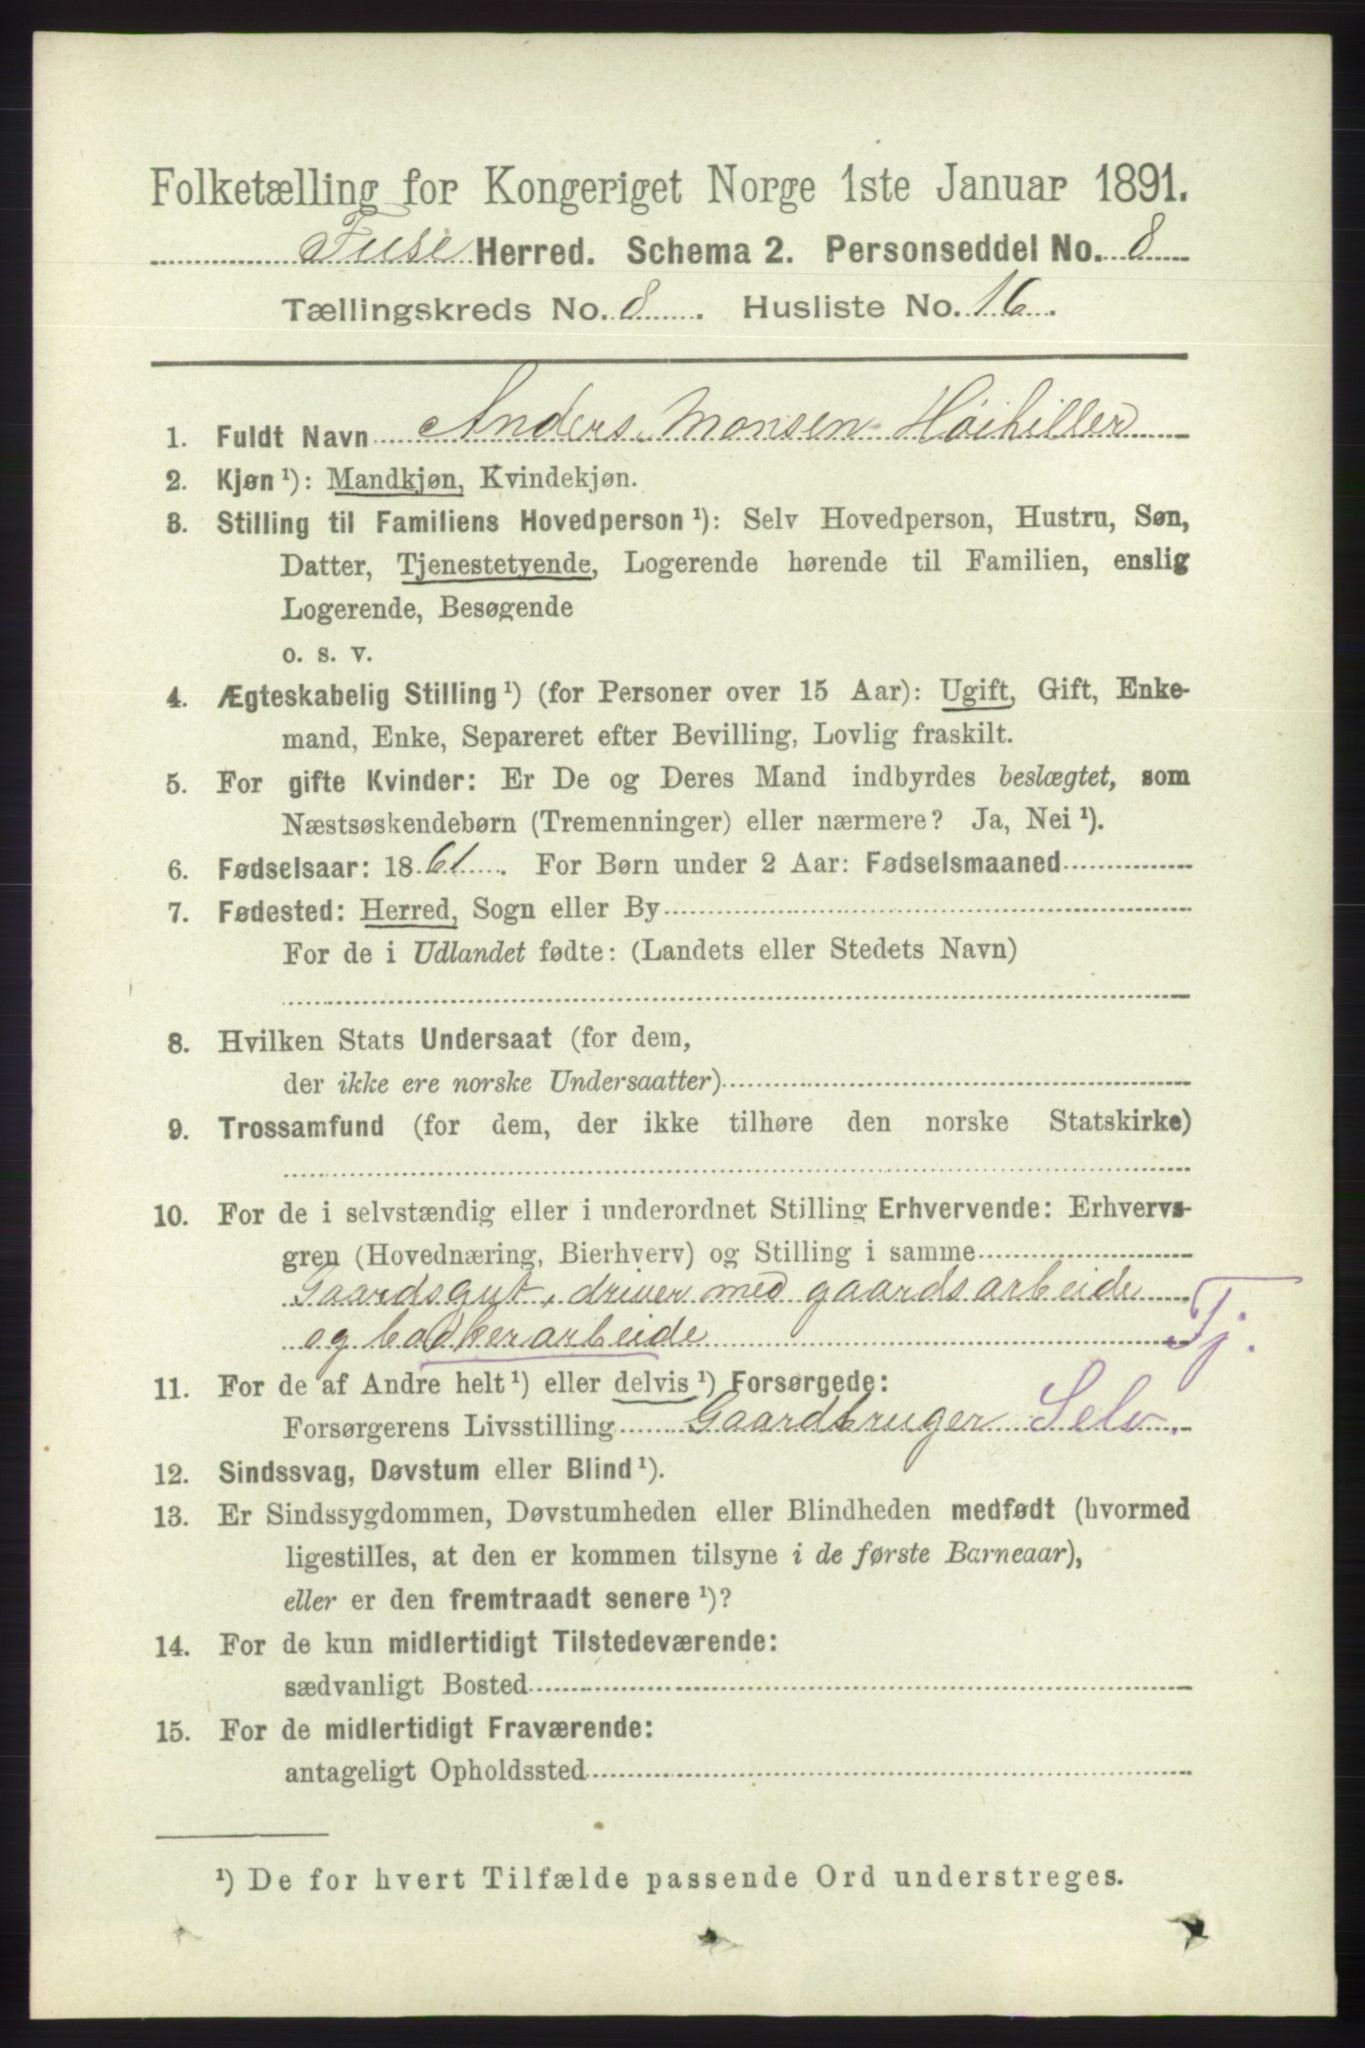 Folketælling for Kongeriget Norge 1ste Januar 1891.
Fuse Herred. Schema 2. Personseddel No. 8
Tællingskreds No. 8. Husliste No. 16.
1. Fuldt Navn Anders Monsen Høihiller
2. Kjøn ¹): Mandkjøn, Kvindekjøn.
3. Stilling til Familiens Hovedperson ¹): Selv Hovedperson, Hustru, Søn,
Datter, Tjenestetyende, Logerende hørende til Familien, enslig
Logerende, Besøgende
o. s. v.
4. Ægteskabelig Stilling ¹) (for Personer over 15 Aar): Ugift, Gift, Enke-
mand, Enke, Separeret efter Bevilling, Lovlig fraskilt.
5. For gifte Kvinder: Er De og Deres Mand indbyrdes beslægtet, som
Næstsøskendebørn (Tremenninger) eller nærmere? Ja, Nei ¹).
6. Fødselsaar: 1861. For Børn under 2 Aar: Fødselsmaaned
7. Fødested: Herred, Sogn eller By
For de i Udlandet fødte: (Landets eller Stedets Navn)
8. Hvilken Stats Undersaat (for dem,
der ikke ere norske Undersaatter)
9. Trossamfund (for dem, der ikke tilhøre den norske Statskirke)
10. For de i selvstændig eller i underordnet Stilling Erhvervende: Erhvervs-
gren (Hovednæring, Bierhverv) og Stilling i samme
Gaardsgut, driver med gaardsarbeide
og bødkerarbeide Tj.
11. For de af Andre helt ¹) eller delvis ¹) Forsørgede:
Forsørgerens Livsstilling Gaardbruger Selv.
12. Sindssvag, Døvstum eller Blind ¹).
13. Er Sindssygdommen, Døvstumheden eller Blindheden medfødt (hvormed
ligestilles, at den er kommen tilsyne i de første Barneaar),
eller er den fremtraadt senere ¹)?
14. For de kun midlertidigt Tilstedeværende:
sædvanligt Bosted
15. For de midlertidigt Fraværende:
antageligt Opholdssted
¹) De for hvert Tilfælde passende Ord understreges.